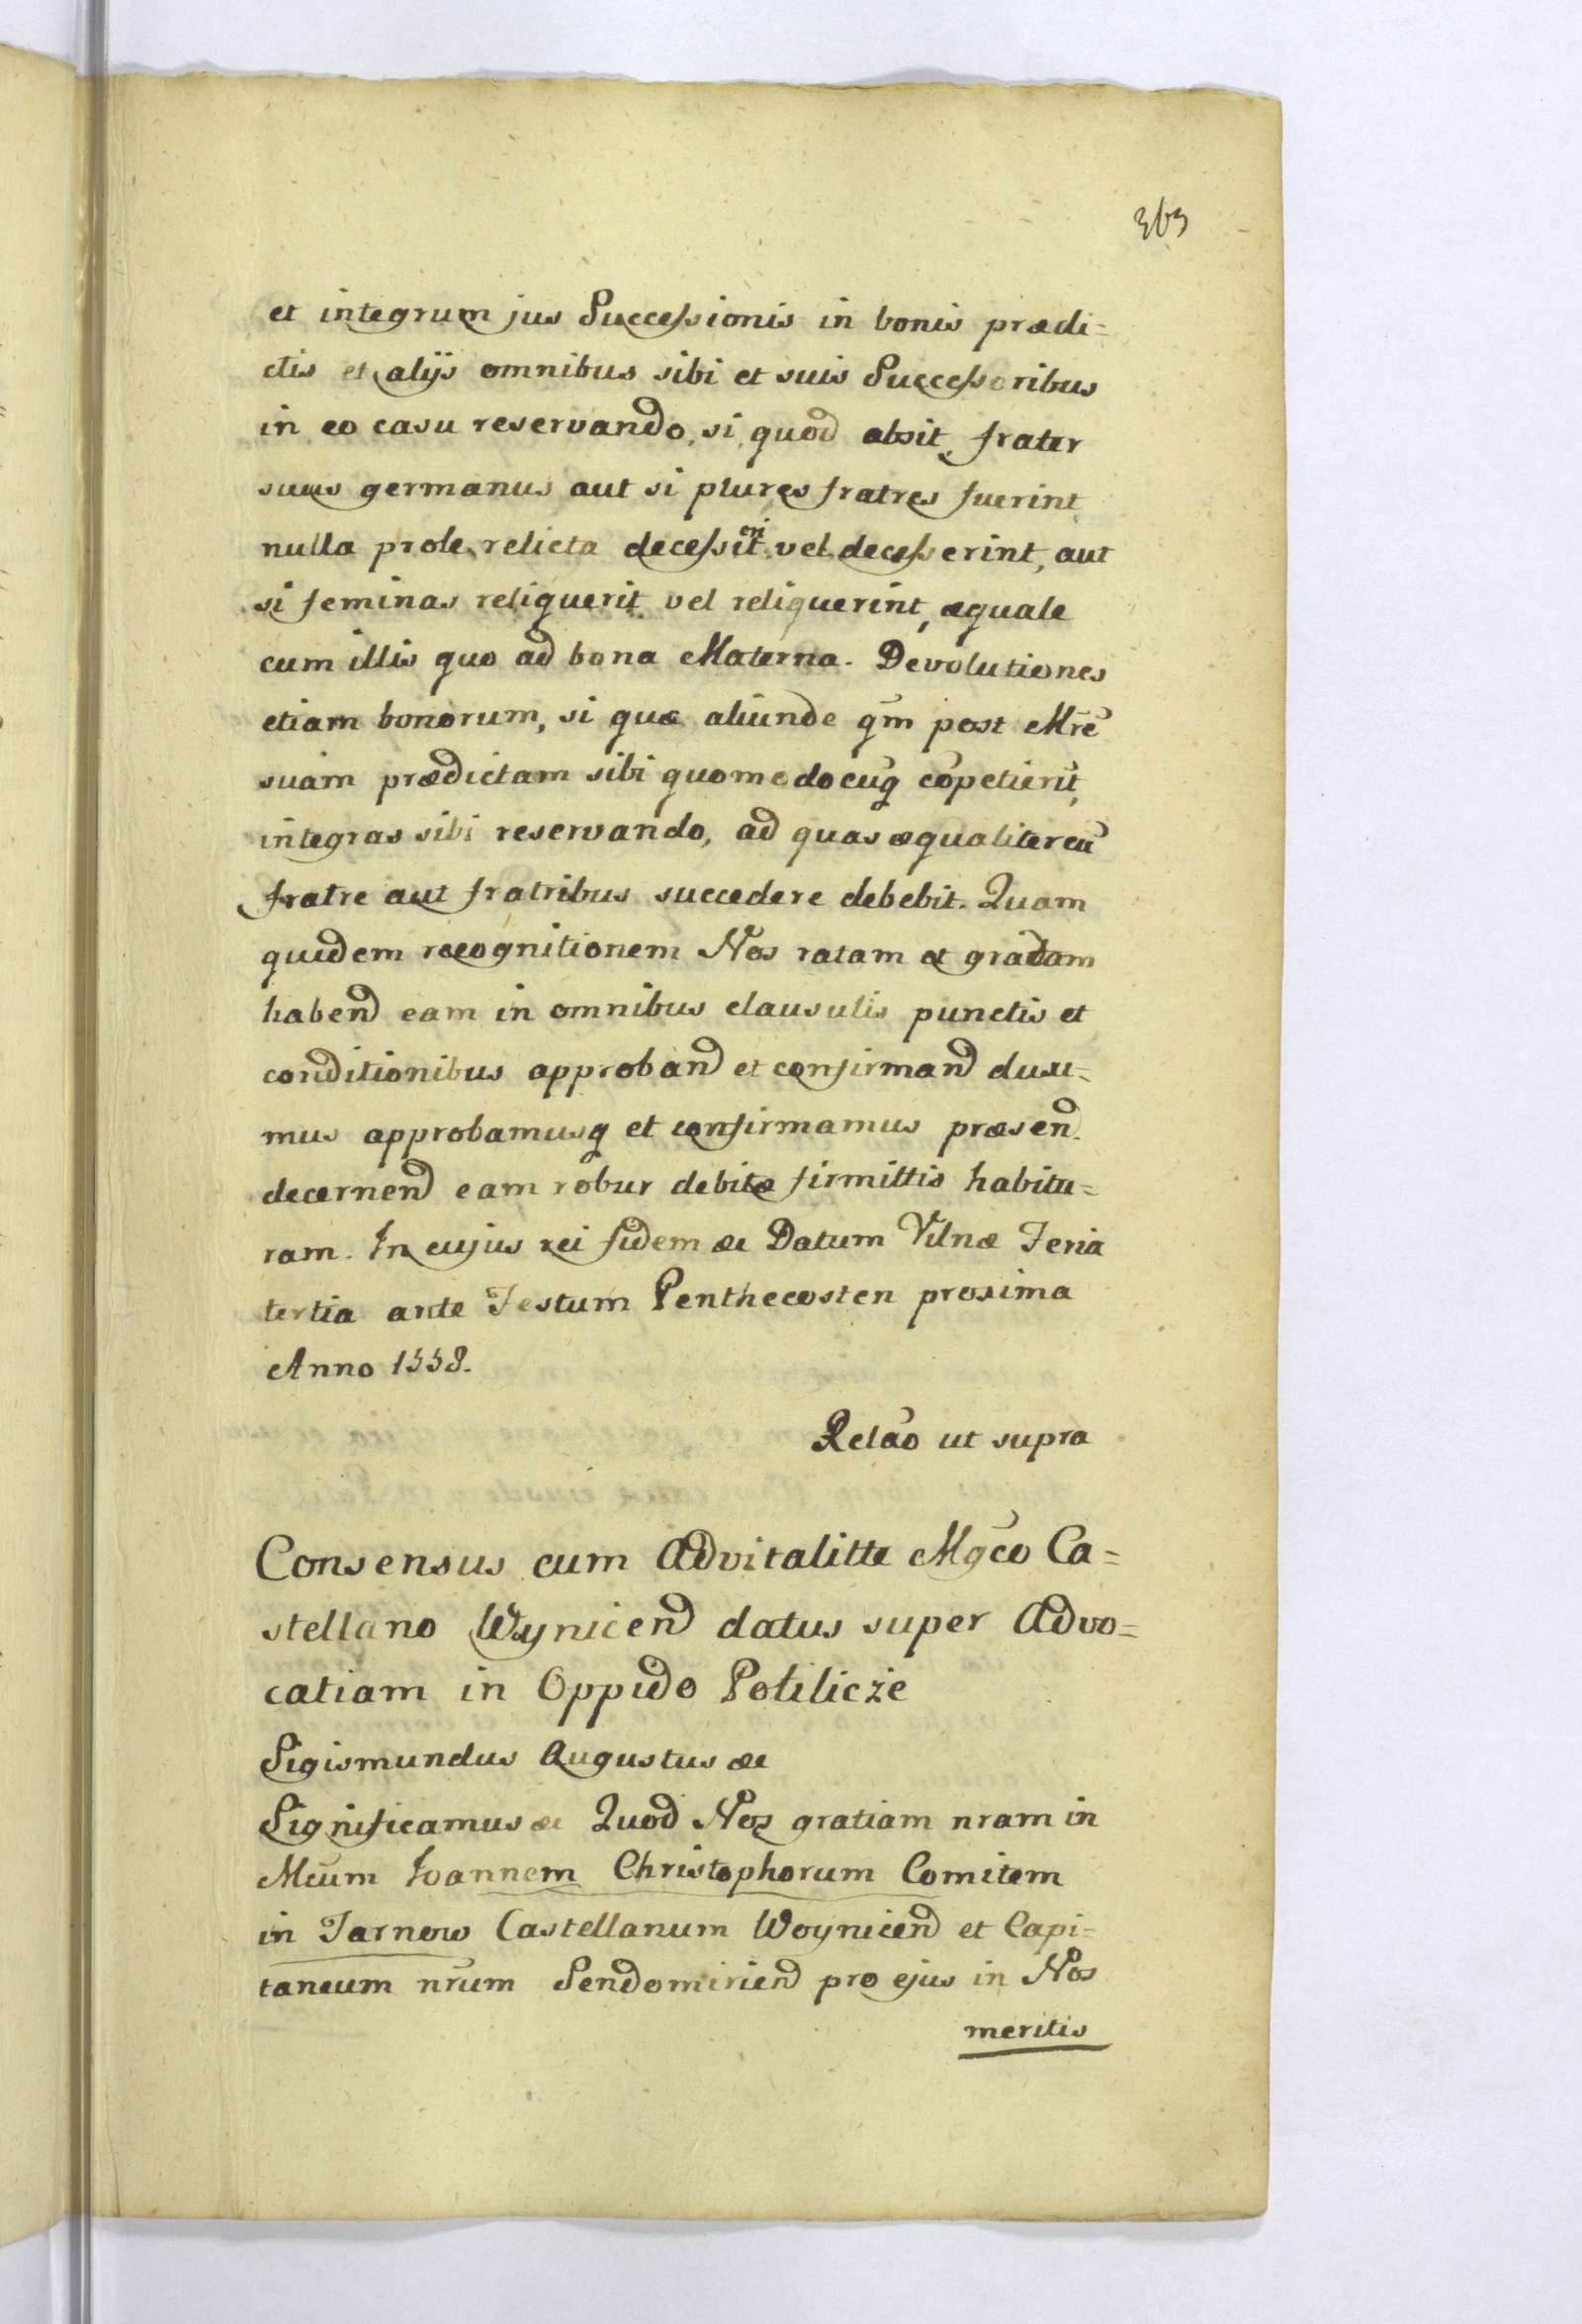 363
et integrum jus Successionis in bonis prædi=
ctis et alijs omnibus sibi et suis Successoribus
in eo casu reservando, si, quod absit, frater
suus germanus aut si plures fratres fuerint
nulla prole relicta decesserit vel decesserint, aut
si feminas reliquerit vel reliquerint, æquale
cum illis quo ad bona Materna. Devolutiones
etiam bonorum, si quæ aliunde qm̄ post Mrē
suam prædictam sibi quomodocuq̄ cōpetierūt,
integras sibi reservando, ad quas æqualiter cū
fratre aut fratribus succedere debebit. Quam
quidem recognitionem Nos ratam et gratam
habend eam in omnibus clausulis punctis et
conditionibus approband et confirmand duxi=
mus approbamusq et confirmamus præsen.
decernend eam robur debitæ firmittis habitu=
ram. In cujus rei fidem &c Datum Vilnæ Feria
tertia ante Festum Penthecosten proxima
Anno 1558.
Relāo ut supra
Consensus cum Advitalitte Mgc̄o Ca=
stellano Wynicend datus super Advo=
catiam in Oppido Potilicże
Sigismundus Augustus &c
Significamus &c Quod Nos gratiam nram in
Mcūm Ioannem Christophorum Comitem
in Tarnow Castellanum Woynicend et Capi=
taneum nr̄um Sendomiriend pro ejus in Nos
meritis